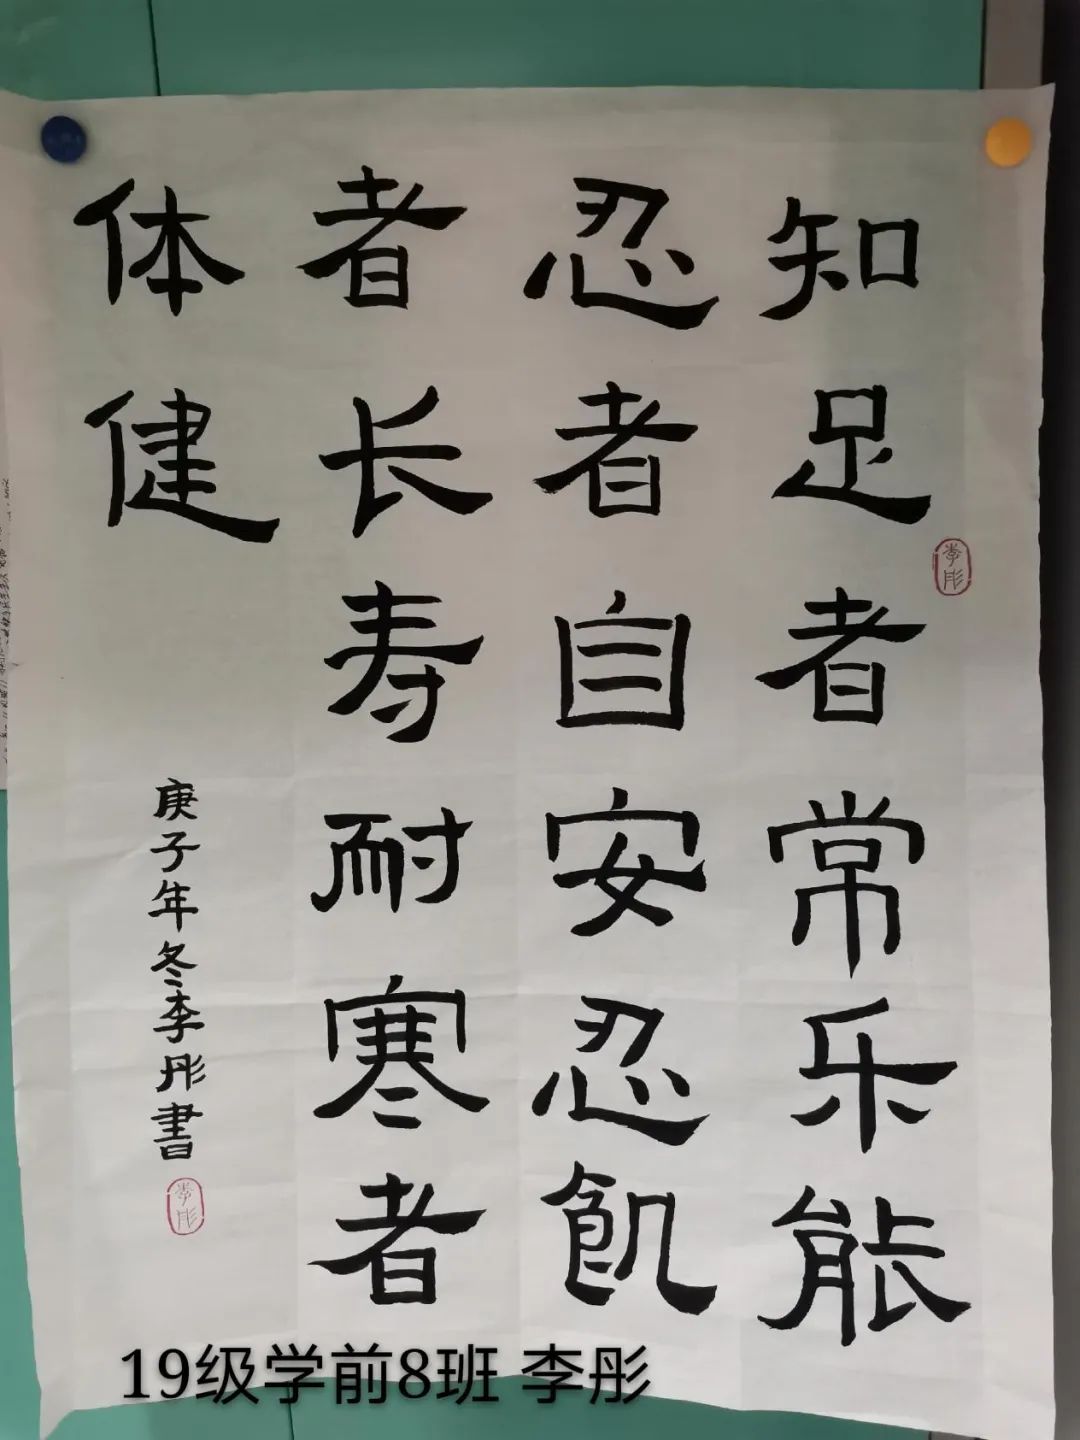 知足者常乐能
忍者自安忍飢
者长寿耐寒者
体健
庚子年冬李彤書
李彤
李彤
19级学前8班 李彤